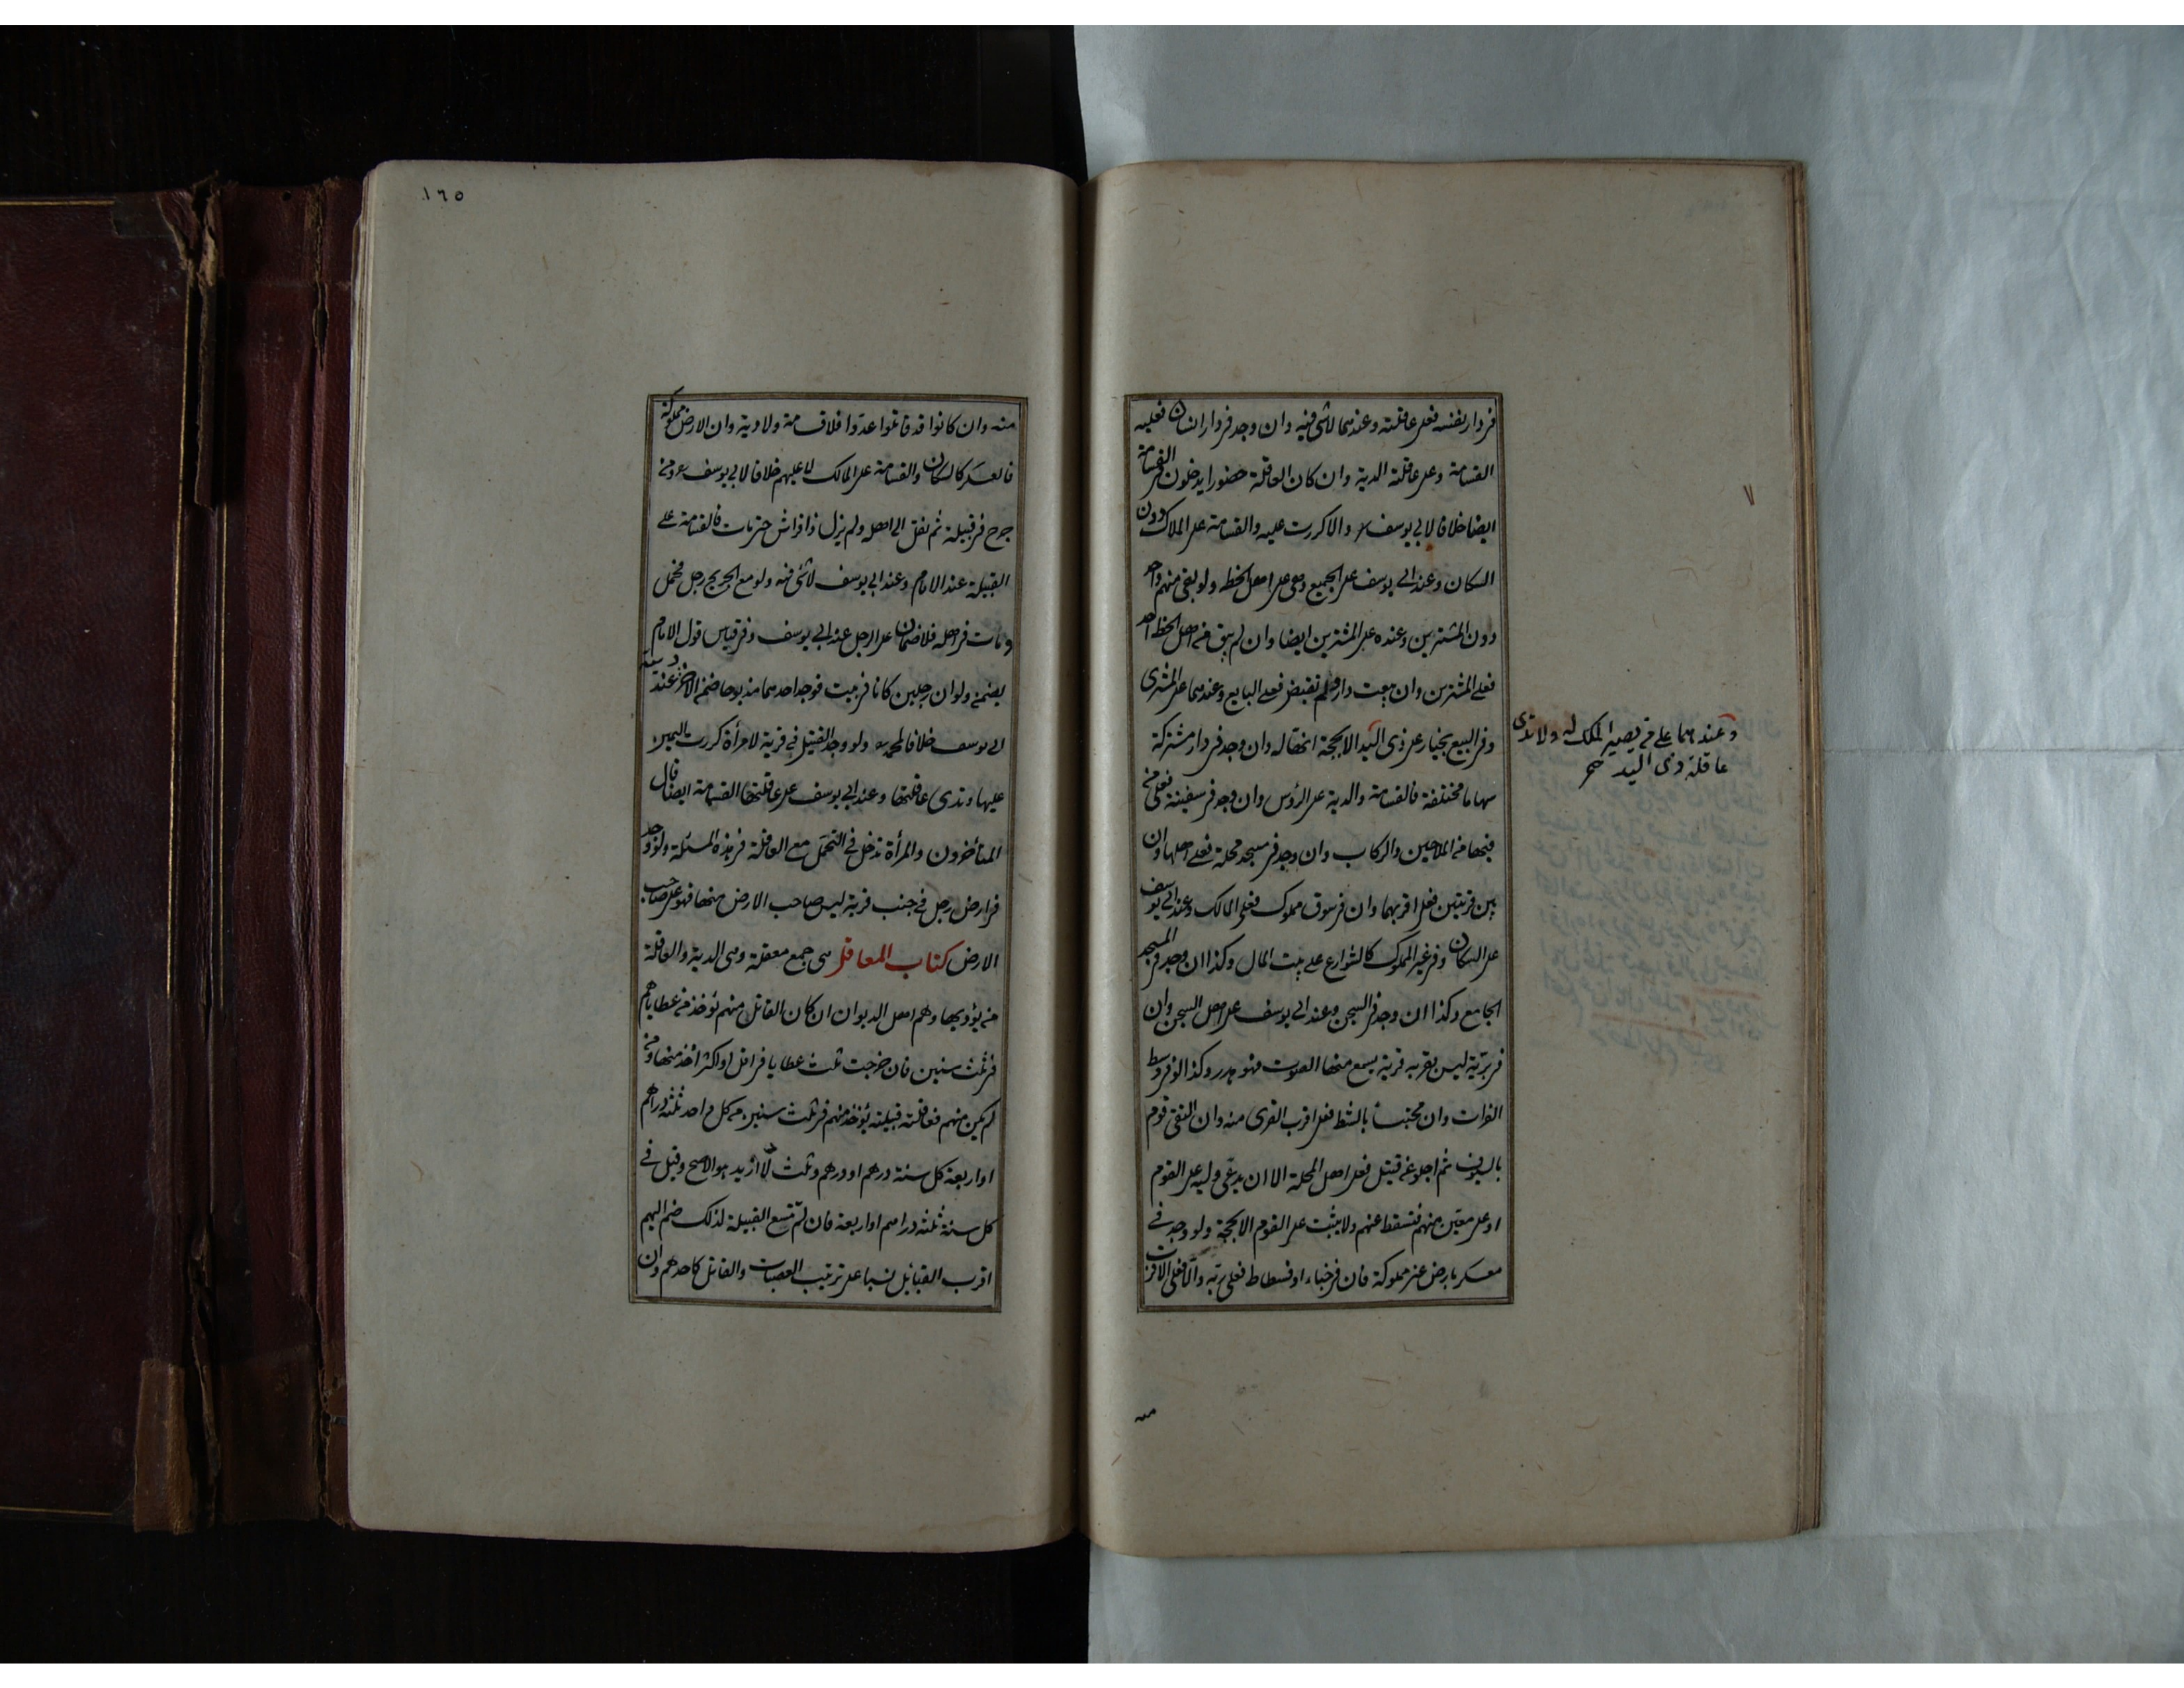 فى دار نفسه فعلى عاقلته وعندهما لا شئ فيه وان وجد فى دار انسان فعليه
القسامة وعلى عاقلته الدية وان كان العاقلة حضورا يدخلون فى القسامة
ايضا خلافا لابى يوسف والا كررت عليه والقسامة على الملاك دون
السكان وعند ابى يوسف على الجميع وهى على اهل الخطه ولو بقى منهم واحد
دون المشترين وعنده على المشترين ايضا وان لم يبق من اهل الخطه احد
فعلى المشترين وان بيعت دار ولم تقبض فعلى البايع وعندهما على المشترى
وفى البيع بخيار على ذى اليد ولا تدى الا بحجة انها له وان وجد فى دار مشتركة
سهاما مختلفة فالقسامة والدية على الرؤس وان وجد فى سفينة فعلى من
فيها من الملاحين والركاب وان وجد فى مسجد محلة فعلى اهلها وان
بين قريتين فعلى اقربهما وان فى سوق مملوك فعلى المالك وعند ابى يوسف
على السكان وفى غير المملوك كالشوارع على بيت المال وكذا ان وجد فى المسجد
الجامع وكذا ان وجد فى السجن وعند ابى يوسف على اهل السجن وان
فى برّية ليس بقربه قرية يسمع منها الصوت فهو هدر وكذا لو فى وسط
الفرات وان محتبسا بالشط فعلى اقرب القرى منه وان التقى قوم
بالسيوف ثم اجلوا عن قتيل فعلى اهل المحلة الا ان يدعى وليه على القوم
او على معين منهم فتسقط عنهم ولا يثبت على القوم الا بحجة ولو وجد فى
معسكر بارض غير مملوكة فان فى خباء او فسطاط فعلى ربه والا فعلى الاقرب
منه
وعندهما على من يصير الملك له ولا تدى
عاقلة ذى اليد
١٦٥
منه وان كانوا قد قاتلوا عدوا فلا قسامة ولا دية وان الارض مملوكة
فالعسكر كالسكان والقسامة على المالك لا عليهم خلافا لابى يوسف ومن
جرح فى قبيلة ثم نقل الى اهله ولم يزل ذا فراش حتى مات فالقسامة على
القبيلة عند الامام وعند ابى يوسف لا شئ فيه ولو مع الجريح رجل فحمل
ومات فى اهله فلا ضمان على الرجل عند ابى يوسف وفى قياس قول الامام
يضمن ولو ان رجلين كانا فى بيت فوجد احدهما مذبوحا ضمن الاخر ديته عند
ابى يوسف خلافا لمحمد ولو وجد القتيل فى قرية لامرأة كررت اليمين
عليها وتدى عاقلتها وعند ابى يوسف على عاقلتها القسامة ايضا قال
المتأخرون والمرأة تدخل فى التحمل مع العاقلة فى هذه المسئلة ولو وجد
فى ارض رجل فى جنب قرية ليس صاحب الارض منها فهو على صاحب
الارض كتاب المعاقل هى جمع معقلة وهى الدية والعاقلة
من يؤديها وهم اهل الديوان ان كان القاتل منهم تؤخذ من عطاياهم
فى ثلث سنين فان خرجت ثلث عطايا فى اقل او اكثر اخذ منها ومن
لم يكن منهم فعاقلته قبيلته يؤخذ منهم فى ثلث سنين من كل واحد ثلثة دراهم
او اربعة كل سنة درهم او درهم وثلث لا ازيد هو الاصح وقيل فى
كل سنة ثلثة دراهم او اربعة فان لم تتسع القبيلة لذلك ضم اليهم
اقرب القبايل نسبا على ترتيب العصبات والقاتل كاحدهم وان